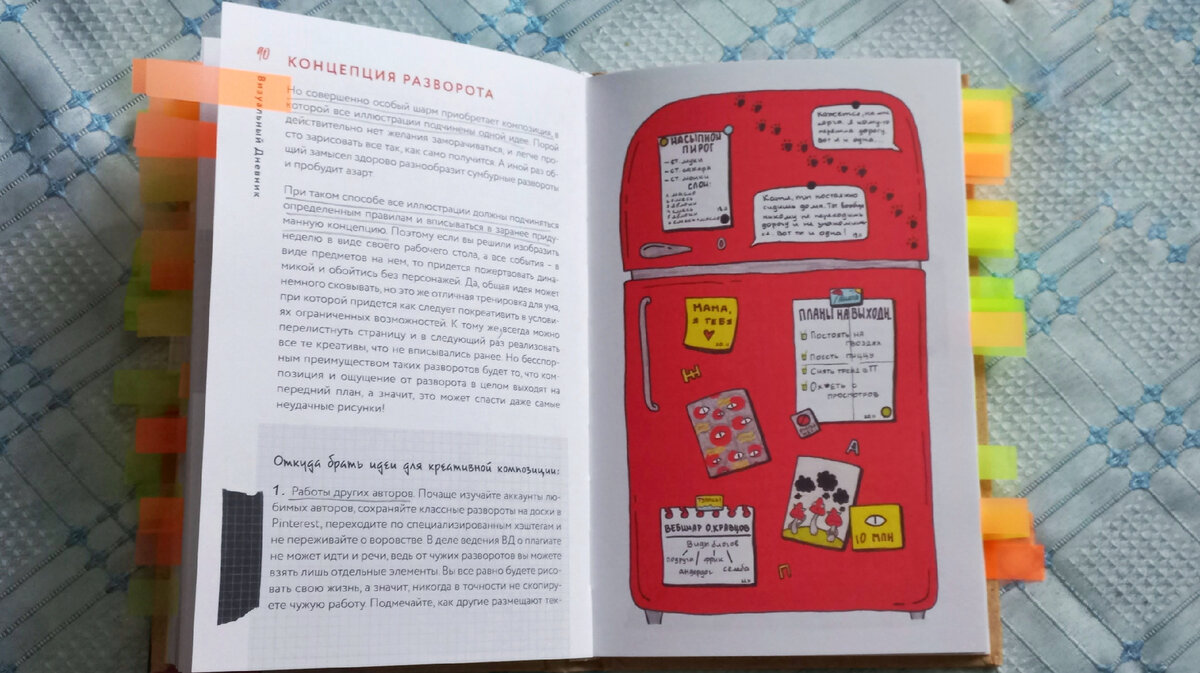 90
Визуальный Дневник
КОНЦЕПЦИЯ РАЗВОРОТА
Но совершенно особый шарм приобретает композиция, в
которой все иллюстрации подчинены одной идее. Порой
действительно нет желания заморачиваться, и легче про-
сто зарисовать все так, как само получится. А иной раз об-
щий замысел здорово разнообразит сумбурные развороты
и пробудит азарт.
При таком способе все иллюстрации должны подчиняться
определенным правилам и вписываться в заранее приду-
манную концепцию. Поэтому если вы решили изобразить
неделю в виде своего рабочего стола, а все события - в
виде предметов на нем, то придется пожертвовать дина-
микой и обойтись без персонажей. Да, общая идея может
немного сковывать, но это же отличная тренировка для ума,
при которой придется как следует покреативить в услови-
ях ограниченных возможностей. К тому же, всегда можно
перелистнуть страницу и в следующий раз реализовать
все те креативы, что не вписывались ранее. Но бесспор-
ным преимуществом таких разворотов будет то, что ком-
позиция и ощущение от разворота в целом выходят на
передний план, а значит, это может спасти даже самые
неудачные рисунки!
Откуда брать идеи для креативной композиции:
1. Работы других авторов. Почаще изучайте аккаунты лю-
бимых авторов, сохраняйте классные развороты на доски в
Pinterest, переходите по специализированным хэштегам и
не переживайте о воровстве. В деле ведения ВД о плагиате
не может идти и речи, ведь от чужих разворотов вы можете
взять лишь отдельные элементы. Вы все равно будете рисо-
вать свою жизнь, а значит, никогда в точности не скопиру-
ете чужую работу. Подмечайте, как другие размещают тек-
НАСЫПНОЙ
ПИРОГ
– СТ. МУКИ
– СТ. САХАРА
– СТ. МАНКИ
СЛОИ:
Кажется, на
я кому-то
перешла дорогу.
Вот я и одна...
Катя, ты постоянно
сидишь дома. Ты вообще
никому не переходишь
дорогу и не знакомишь-
ся. Вот ты и одна!
МАМА,
Я ТЕБЯ
ПЛАНЫ НА ВЫХОДН.
Постоять на
гвоздях
Поесть пиццу
Снять тренд в ТТ
от
просмотров
А
ВЕБИНАР О. КРАВЦОВ
Виды блогов
подруга / фрик
андердог семья
10 МЛН
П